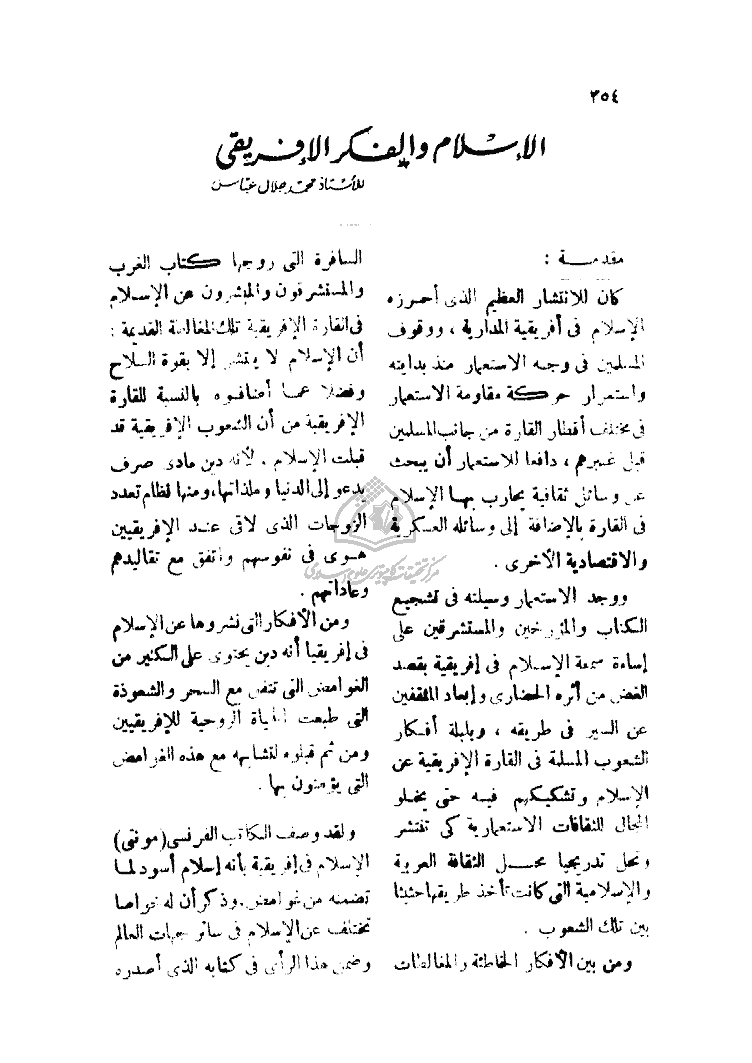 ٣٥٤
الإسلام والفكر الإفريقى
للأستاذ محمد جلال عباس
مقدمة :
كان للانتشار العظيم الذى أحرزه
الإسلام فى أفريقية المدارية ، ووقوف
المسلمين فى وجه الاستعمار منذ بدايته
واستمرار حركة مقاومة الاستعمار
فى مختلف أقطار القارة من جانب المسلمين
قبل غيرهم ، دافعا للاستعمار أن يبحث
عن وسائل ثقافية يحارب بها الإسلام
فى القارة بالإضافة إلى وسائله العسكرية
والاقتصادية الأخرى .
ووجد الاستعمار وسيلته فى تشجيع
الكتاب والمؤرخين والمستشرقين على
إساءة سمعة الإسلام فى إفريقية بقصد
الغض من أثره الحضارى وإبعاد المثقفين
عن السير فى طريقه ، وبلبلة أفكار
الشعوب المسلمة فى القارة الإفريقية عن
الإسلام وتشكيكهم فيه حتى يخلو
المجال للثقافات الاستعمارية كى تنتشر
وتحل تدريجيا محل الثقافة العربية
والإسلامية التى كانت تأخذ طريقها حثيثا
بين تلك الشعوب .
ومن بين الأفكار الخاطئة والمغالطات
السافرة التى روجها كتاب الغرب
والمستشرقون والمبشرون عن الإسلام
فى القارة الإفريقية تلك المغالطة القديمة :
أن الإسلام لا ينتشر إلا بقوة السلاح
وفضلا عما أضافوه بالنسبة للقارة
الإفريقية من أن الشعوب الإفريقية قد
قبلت الإسلام . لأنه دين مادى صرف
يدعو إلى الدنيا وملذاتها، ومنها نظام تعدد
الزوجات الذى لاقى عند الإفريقيين
هوى فى نفوسهم واتفق مع تقاليدهم
وعاداتهم .
ومن الأفكار التى نشروها عن الإسلام
فى إفريقيا أنه دين يحتوى على الكثير من
الغوامض التى تتفق مع السحر والشعوذة
التى طبعت الحياة الروحية للإفريقيين
ومن ثم قبلوه لتشابهه مع هذه الغوامض
التى يؤمنون بها .
ولقد وصف الكاتب الفرنسى (مونتى)
الإسلام فى إفريقية بأنه إسلام أسود لما
تضمنه من غوامض . وذكر أن له خواصا
تختلف عن الإسلام فى سائر جهات العالم
وضمن هذا الرأى فى كتابه الذى أصدره
مركز تحقيقات كامپيوترى علوم اسلامى